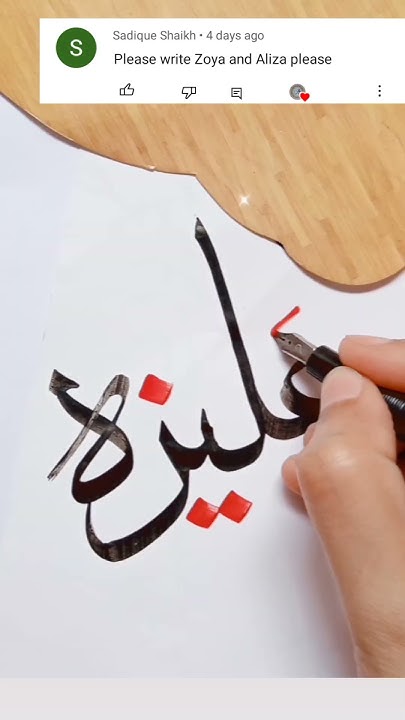 Sadique Shaikh • 4 days ago
Please write Zoya and Aliza please
S
علیزہ